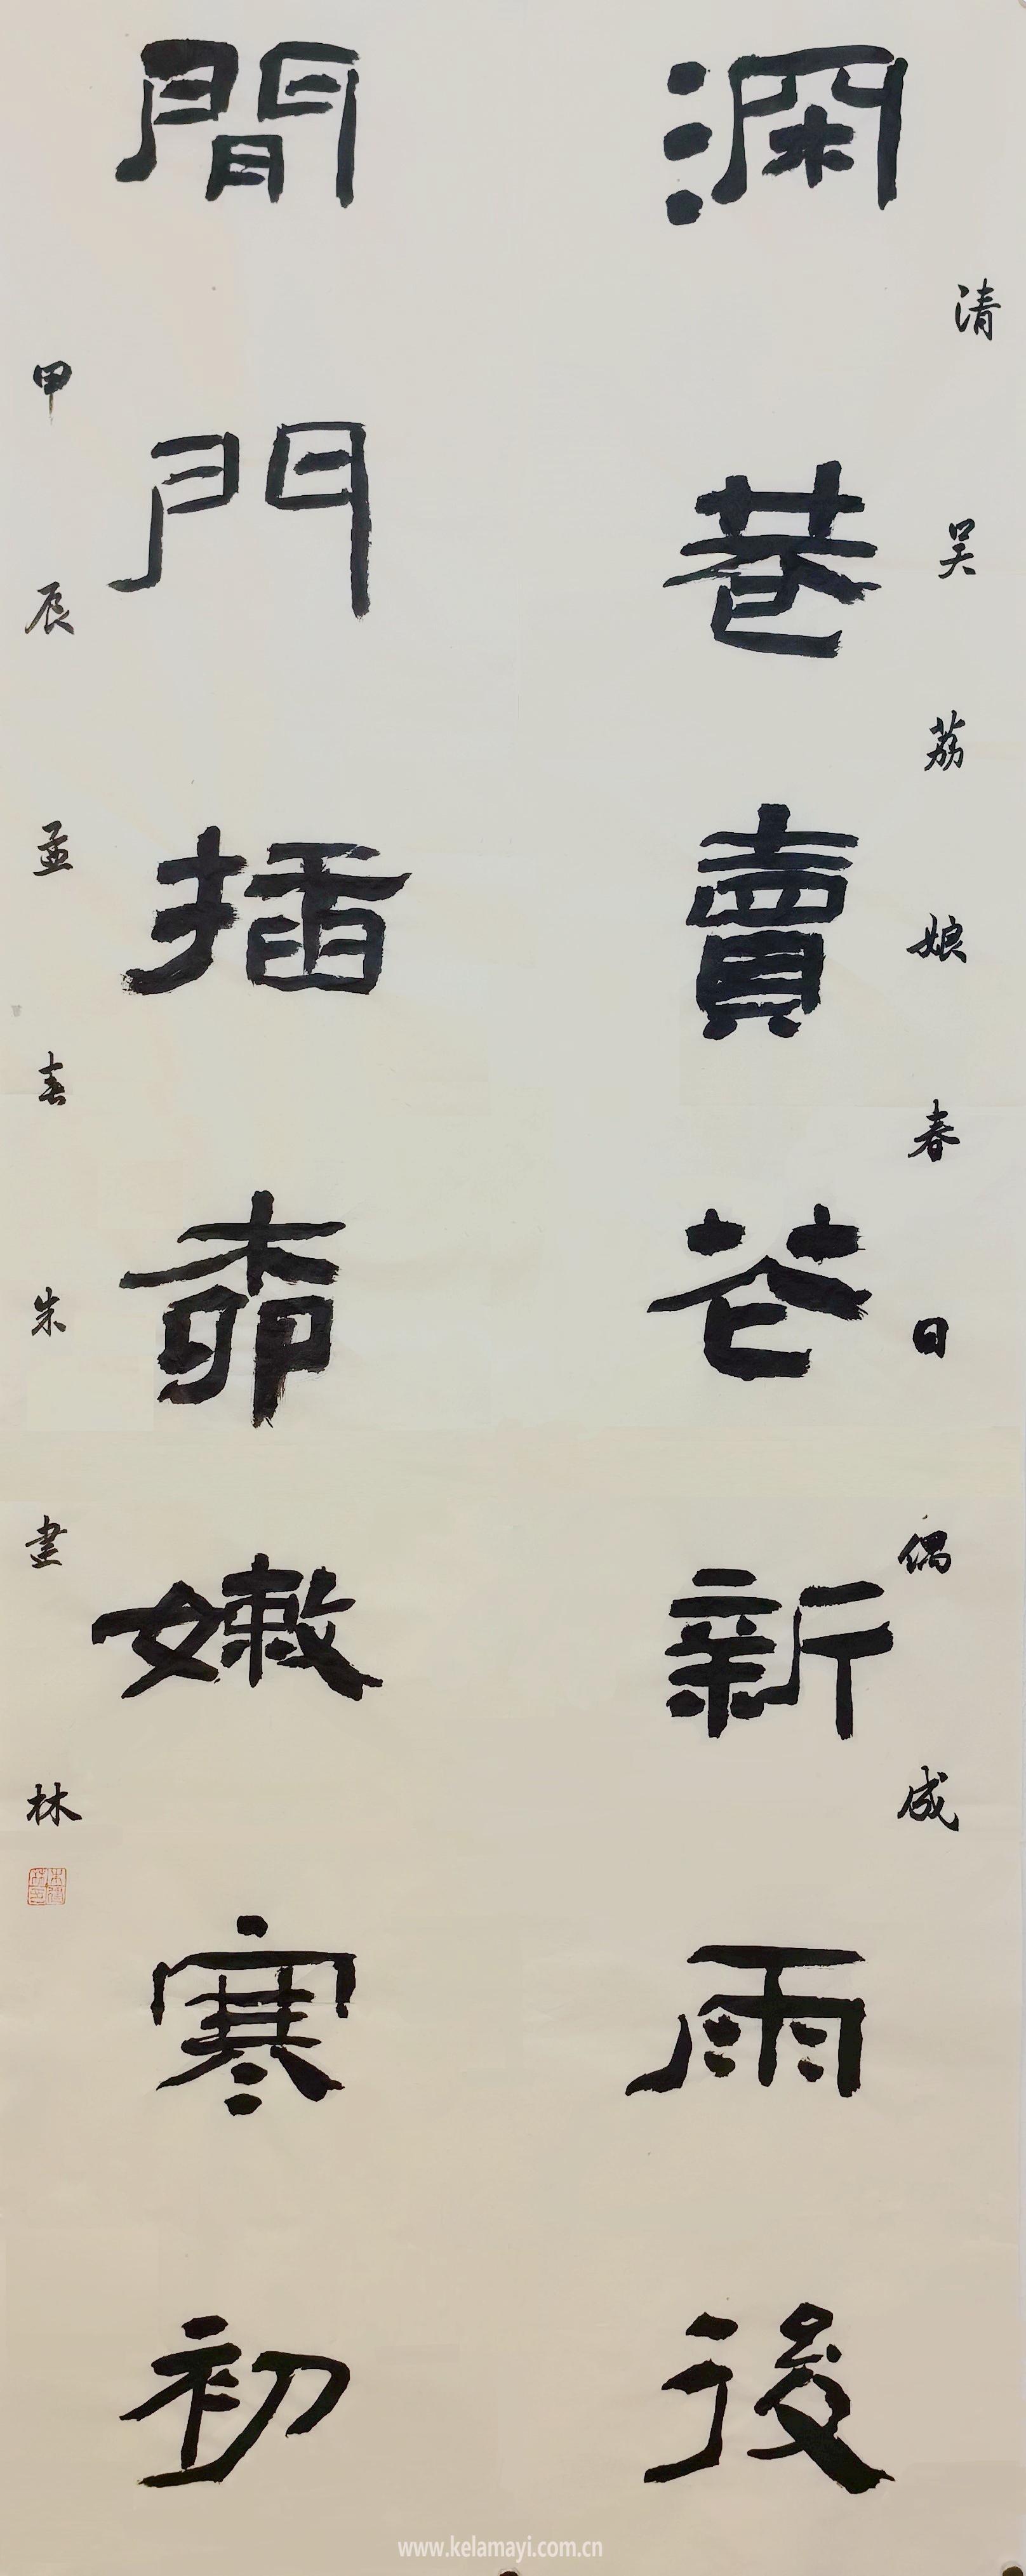 清吴荔娘春日偶成
深巷賣花新雨後
閒門插柳嫩寒初
甲辰孟春朱建林
www.kelamayi.com.cn